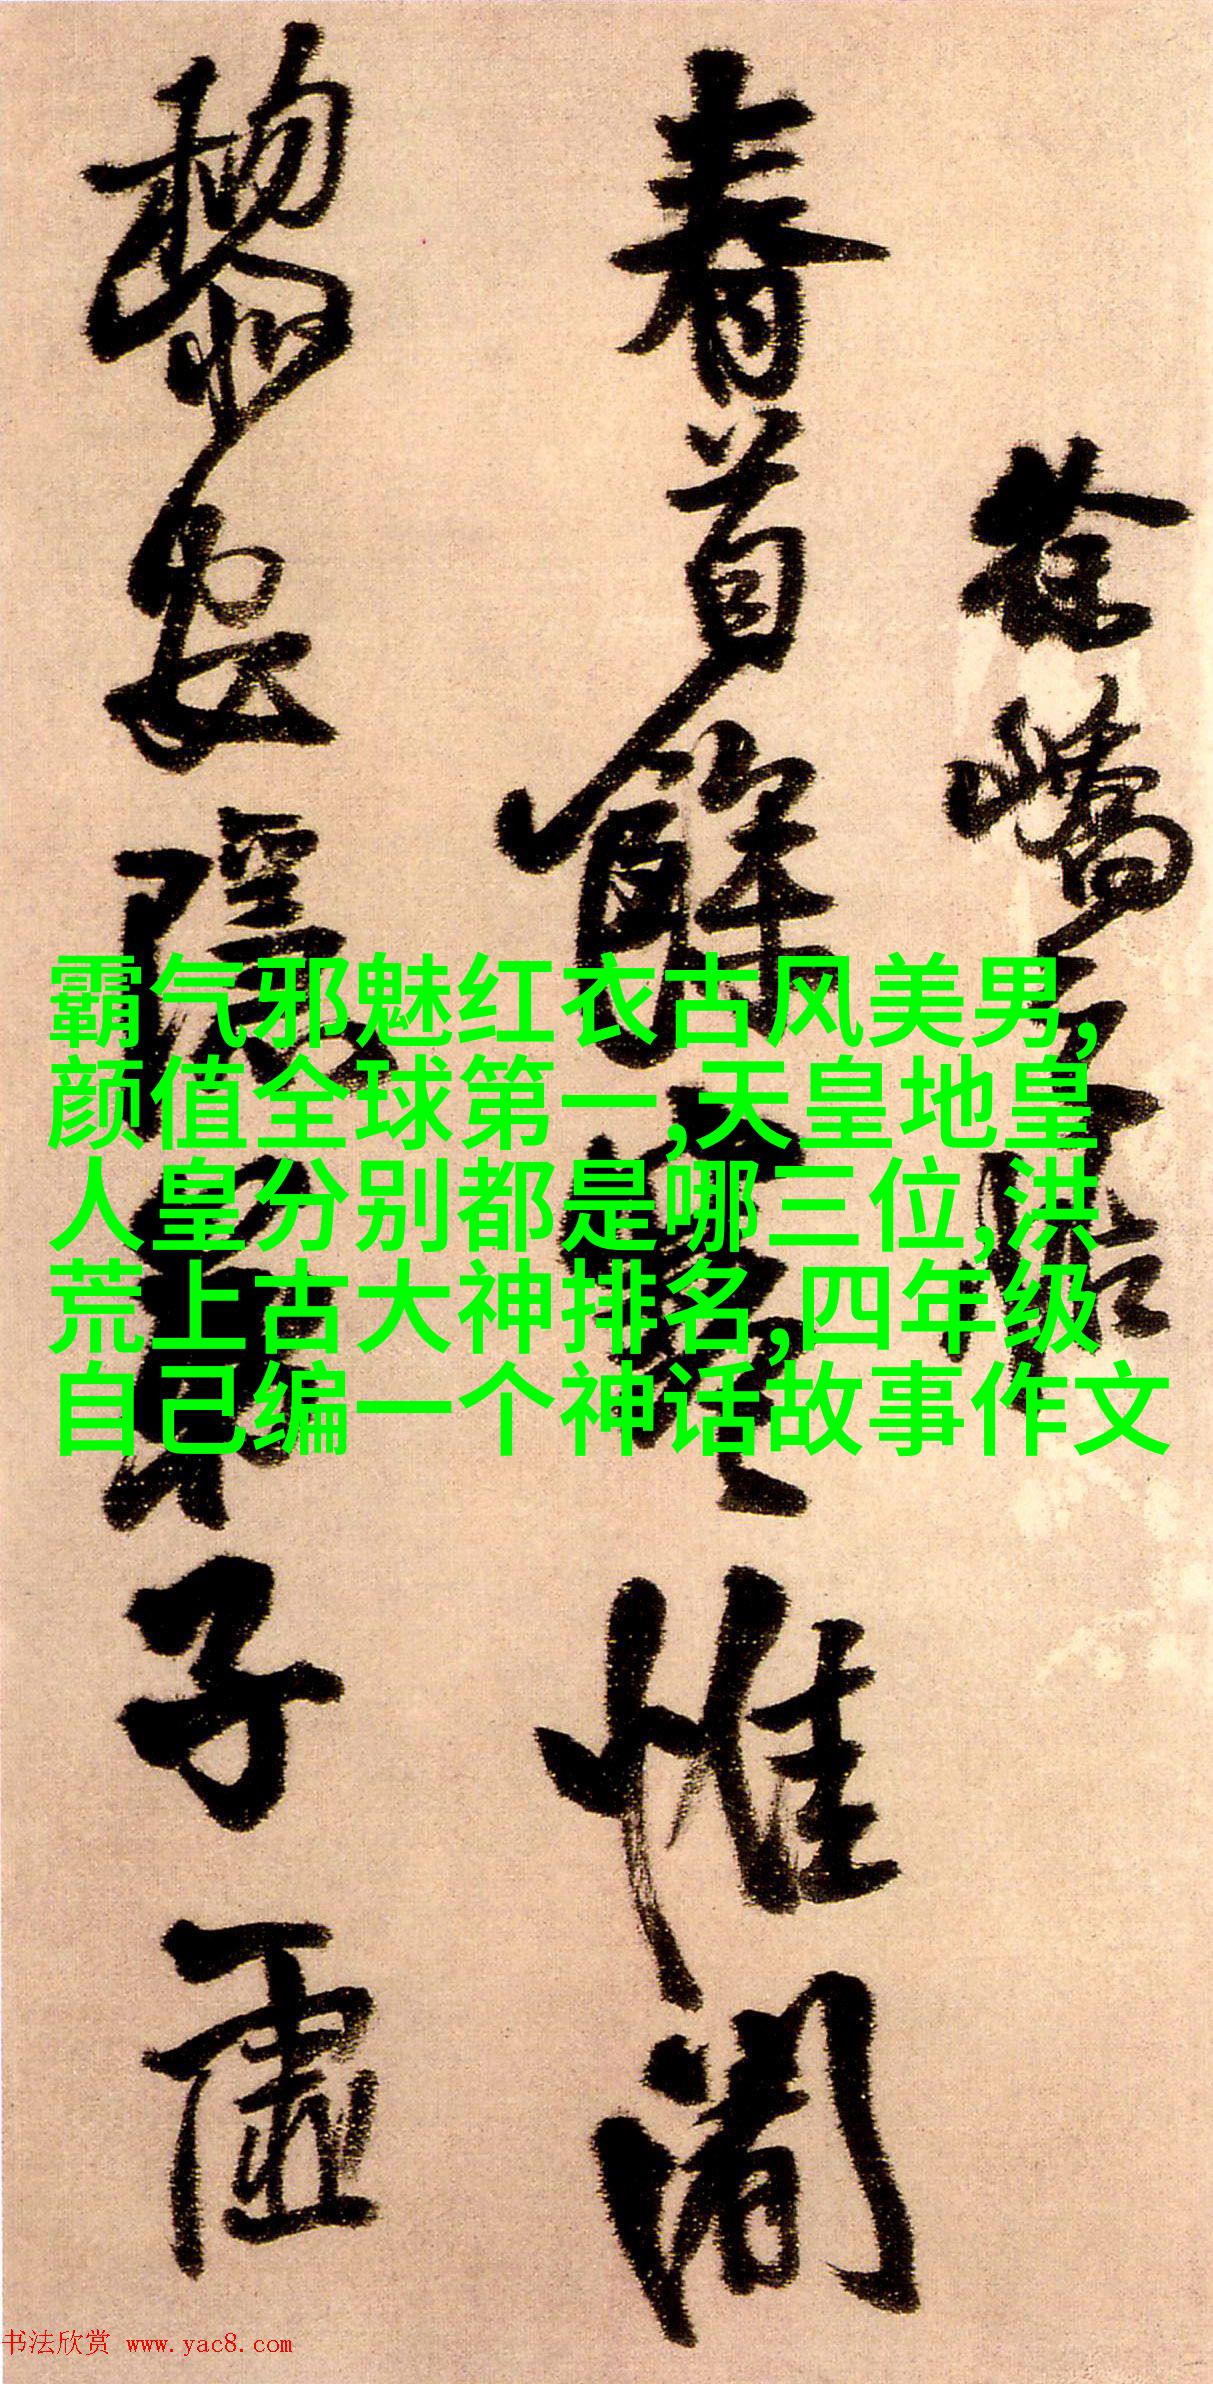 徐嶠之
春首餘寒惟闍
黎安隱弟子虛
霸气邪魅红衣古风美男,
颜值全球第一,天皇地皇
人皇分别都是哪三位,洪
荒上古大神排名,四年级
自己编一个神话故事作文
书法欣赏 www.yac8.com